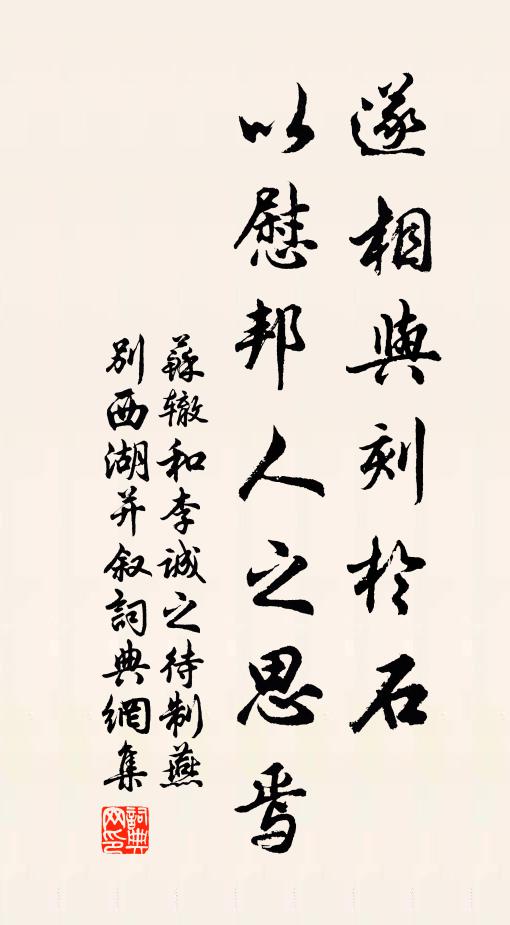 遂相與刻於石
以慰邦人之思焉
蘇辙和李诚之待制燕
别西湖并叙詞典網集
詞典
网印